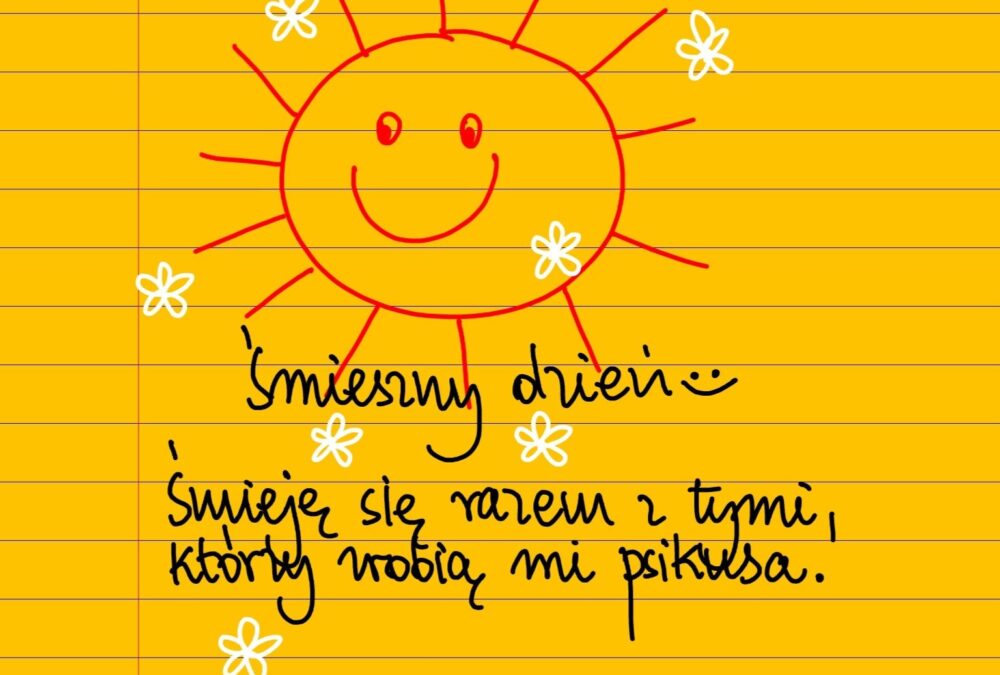 Śmieszny dzień
Śmieję się razem z tymi,
którzy robią mi psikusa.